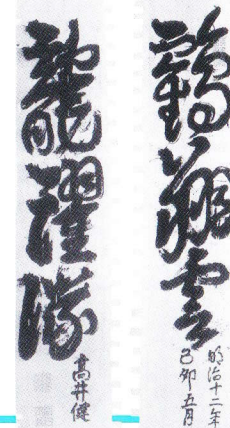 鶴翔雲
明治十二年
己卯五月
龍躍隊
高井健